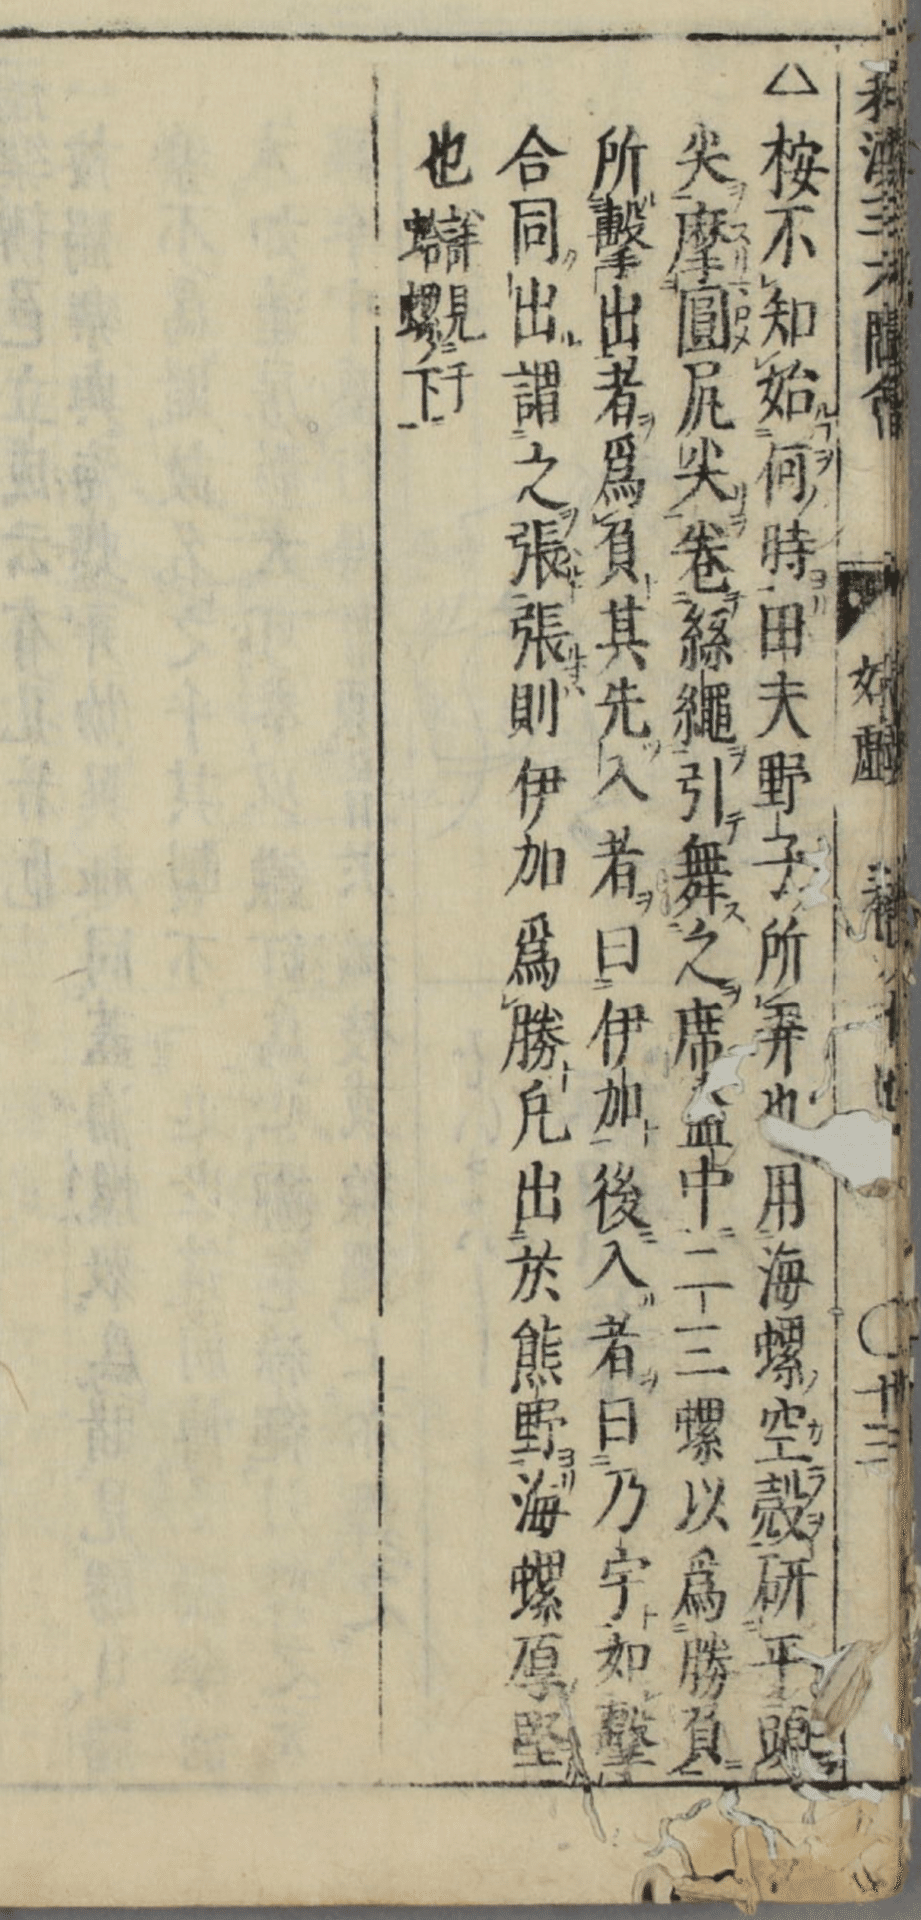 △桉不知始何時田夫野子所弄也用海螺空殼研平頭
尖摩圓尻尖卷絲繩引舞之席盆中二三螺以爲勝負
所擊出者爲負其先入者曰伊加後入者曰乃宇如擊
合同出謂之張張則伊加爲勝凡出於熊野海螺厚堅
也詳見于
蛤螺下